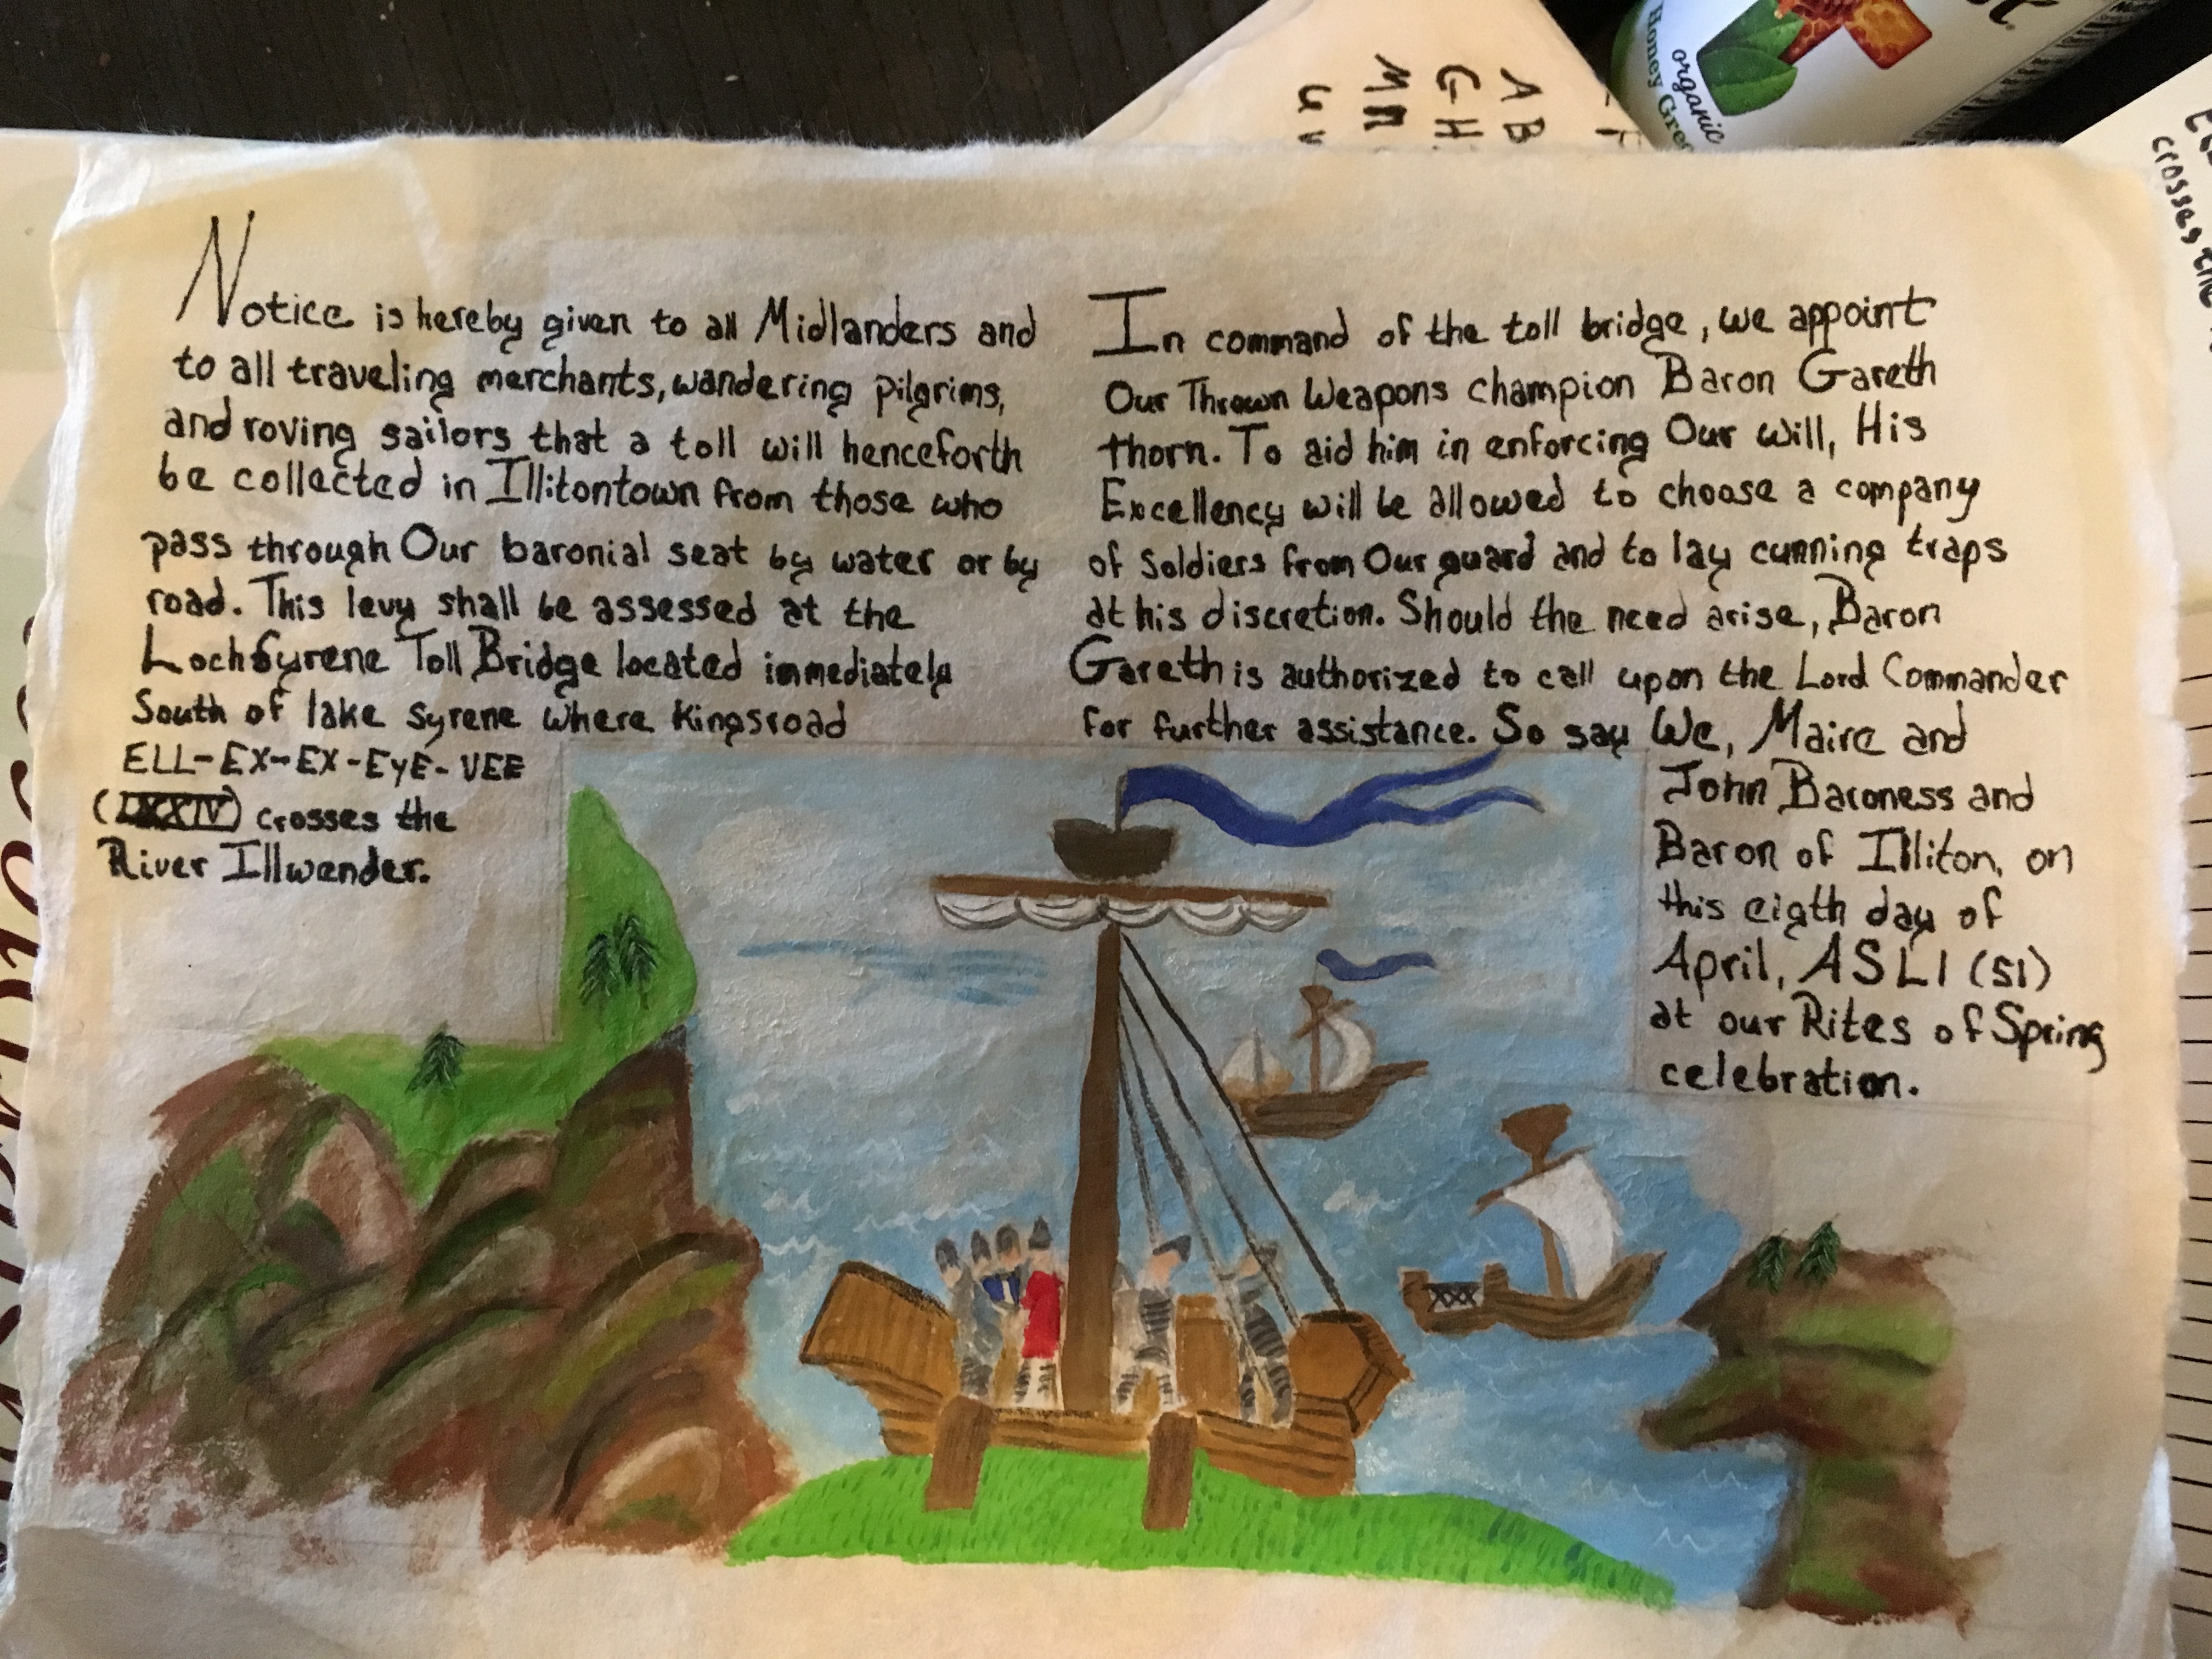 Notice is hereby given to all Midlanders and
to all traveling merchants, wandering pilgrims,
and roving sailors that a toll will henceforth
be collected in Illitontown from those who
pass through Our baronial seat by water or by
road. This levy shall be assessed at the
Loch Syrene Toll Bridge located immediately
South of lake Syrene where Kingsroad
ELL-EX-EX-EYE-VEE
(LXXIV) crosses the
River Illwander.
In command of the toll bridge, we appoint
Our Thrown Weapons champion Baron Gareth
thorn. To aid him in enforcing Our will, His
Excellency will be allowed to choose a company
of Soldiers from Our guard and to lay cunning traps
at his discretion. Should the need arise, Baron
Gareth is authorized to call upon the Lord Commander
for further assistance. So say We, Maire and
John Baroness and
Baron of Illiton, on
this eigth day of
April, ASLI (51)
at our Rites of Spring
celebration.
A B
G H
M N
U V
organic
Honey Gree
crosses the